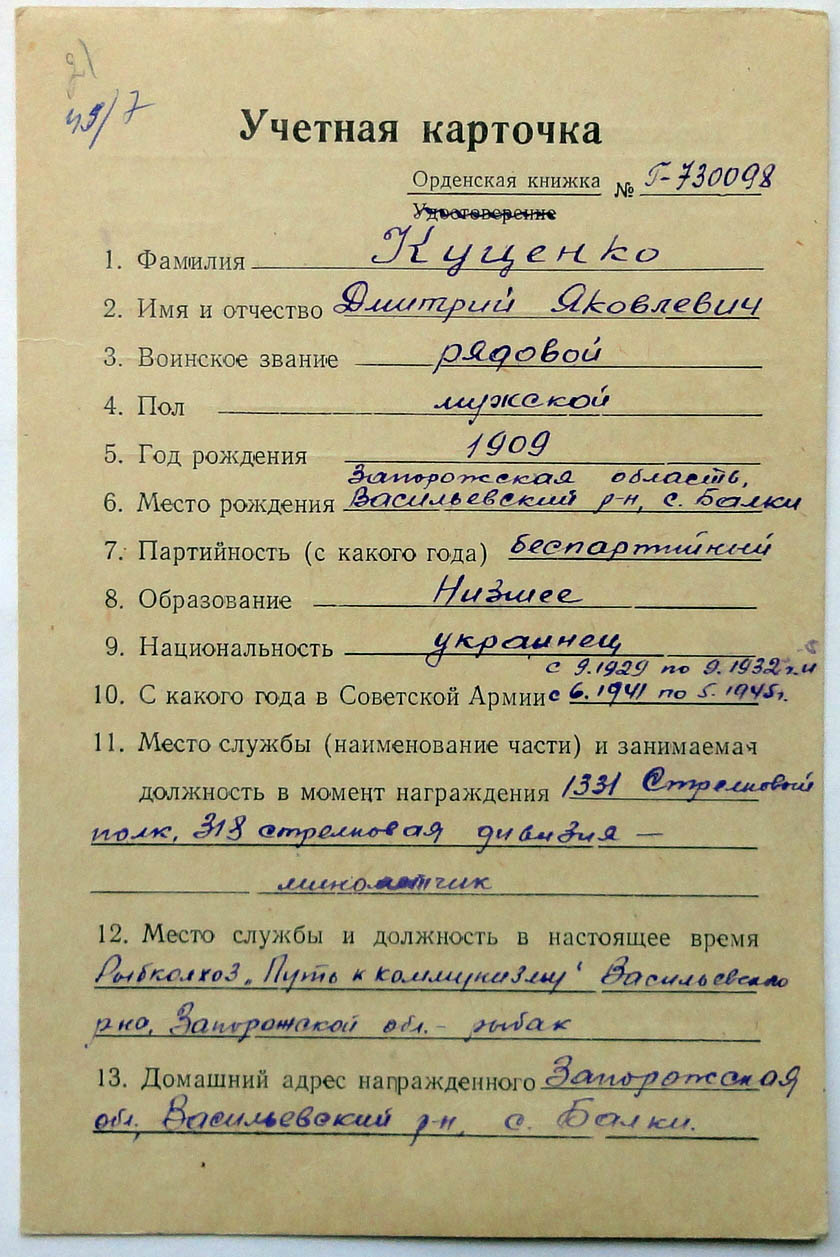 49/7
Учетная карточка
Орденская книжка № Г-730098
Удостоверение
1. Фамилия Кущенко
2. Имя и отчество Дмитрий Яковлевич
3. Воинское звание рядовой
4. Пол мужской
5. Год рождения 1909
Запорожская область,
6. Место рождения Васильевский р-н, с. Балки
7. Партийность (с какого года) беспартийный
8. Образование Низшее
9. Национальность украинец
с 9.1929 по 9.1932 г. и
10. С какого года в Советской Армии с 6.1941 по 5.1945г.
11. Место службы (наименование части) и занимаемая
должность в момент награждения 1331 Стрелковый
полк, 318 стрелковая дивизия —
минометчик
12. Место службы и должность в настоящее время
Рыбколхоз „Путь к коммунизму" Васильевского
р-на, Запорожской обл. - рыбак
13. Домашний адрес награжденного Запорожская
обл., Васильевский р-н, с. Балки.